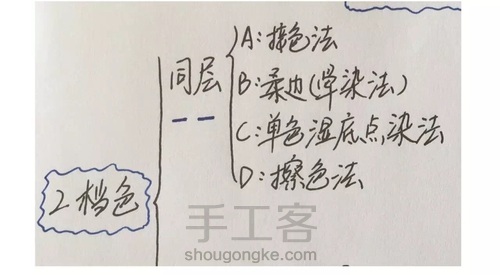 同层
A:接色法
B:柔边(晕染法)
C:单色湿底点染法
D:擦色法
2档色
手工客
shougongke.com